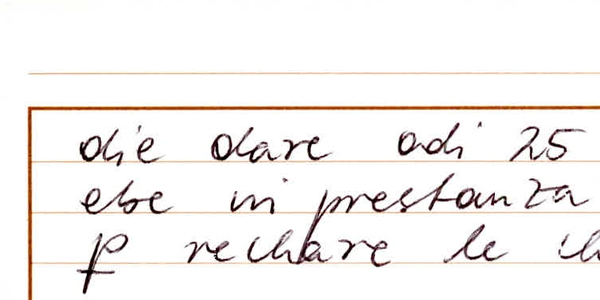 die dare adi 25
ebe in prestanza
p rechare le